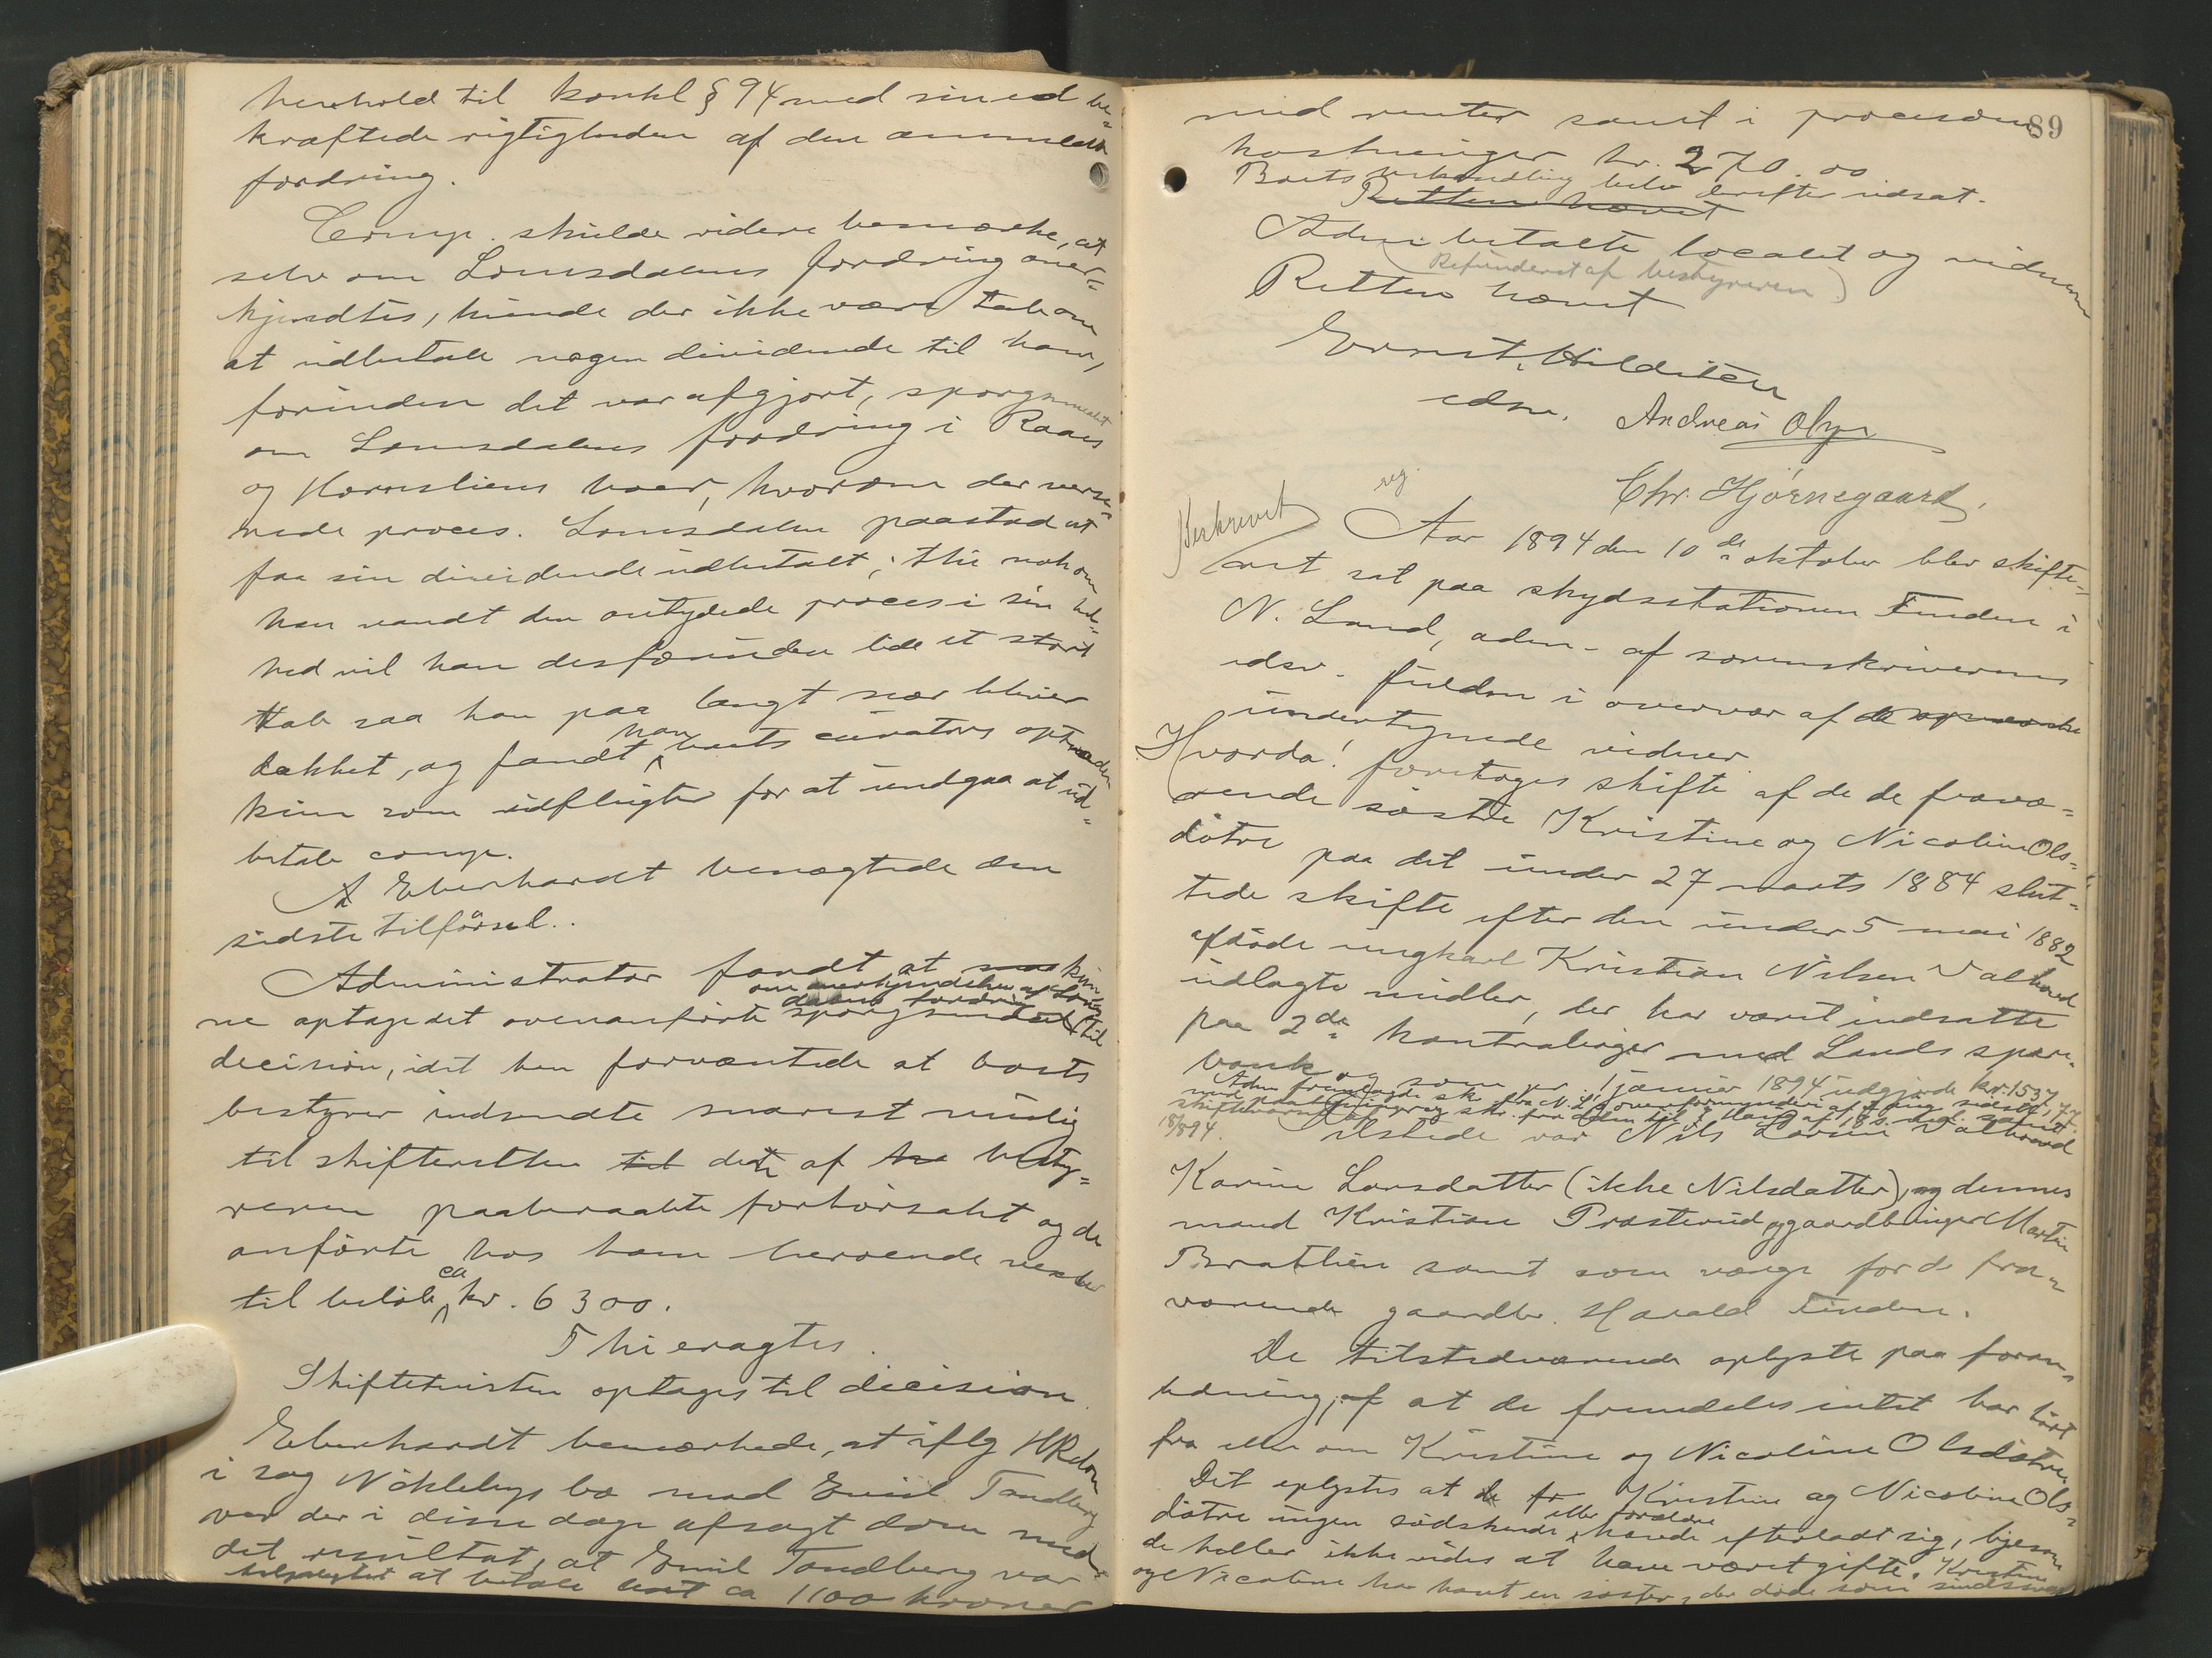 henhold til konkl § 94 med sin ed be-
kræftede rigtigheden af den anmeldte
fordring.
Comp. skulde videre bemærke, at
selv om Lomsdalens fordring aner-
kjendtes, kunde der ikke være tale om
at udbetale nogen dividende til ham,
forinden det var afgjort, spørgsmaalet
om Lomsdalens fordring i Raaes
og Hornsliens boer, hvorom der verse-
rede proces. Lomsdalen paastod at
faa sin dividende udbetalt; thi nok om
han vandt den antydede proces i sin hel-
hed vil han desforuden lide et stort
tab saa han paa langt nær bliver
dækket, og fandt han boets curators optræden
kun som udflugter for at undgaa at ud-
betale comp.
A Eberhardt benægtede den
sidste tilførsel..
Administrator fandt at kun-
om anerkjendelse af Loms-
dalens fordring
ne optage det ovenanførte spørgsmaal til
decision, idet han forventede at boets
bestyrer indsendte snarest mulig
til skifteretten det af besty-
reren paaberaabte forhørsakt og de
anførte hos ham beroende vexler
til beløb ca kr. 6300.
Thi eragtes
Skiftetvisten optages til decision
Eberhardt bemærkede, at iflg HRdom
i sag Nøklebys bo mod Emil Tandberg
var der i disse dage afsagt dom med
det resultat, at Emil Tandberg var
tilpligtet at betale boet ca 1100 kroner
89
med renter samt i procesom-
kostninger kr. 270.00
Boets behandling blev derefter udsat.
Retten hævet
Adm. betalte localet og vidnerne
(Refunderet af bestyreren)
Retten hævet
Ernst Hilditch
edsv. Andreas Olsen
Chr. Hjørnegaard.
Beskrevet
reg.
Aar 1894 den 10de oktober blev skifte-
ret sat paa skydsstationen Finden i
N. Land, adm. af sorenskriverens
edsv. fuldm i overvær af de
undertegnede vidner.
Hvorda! foretoges skifte af de de fravæ-
rende søstre Kristine og Nicoline Ols-
døtre paa det under 27 marts 1884 slut-
tede skifte efter den under 5 mai 1882
afdøde ungkarl Kristian Nilsen Valhovd
udlagte midler, der har været indsatte
paa 2de kontrabøger med Lands spare-
bank og som pr. 1 januar 1894 udgjorde kr. 1537,77
Adm fremlagde sk. fra N. L. overformynderi af
skiftevarsel af
18/8 94.
Tilstede var Nils Larsen Valhovd
Karine Larsdatter (ikke Nilsdatter), og dennes
mand Kristian Prosterud, gaardbruger Martin
Brathlien samt som værge for de fra-
værende gaardbr. Harald Finden.
De tilstedeværende oplyste paa foran-
ledning, at de fremdeles intet har hørt
fra eller om Kristine og Nicoline Olsdøtre.
Det oplystes at Kristine og Nicoline Ols-
døtre ingen sødskende eller forældre havde efterladt sig, ligesom
de heller ikke vides at have været gifte. Kristine
og Nicoline har havt en søster, der døde som sindssvag